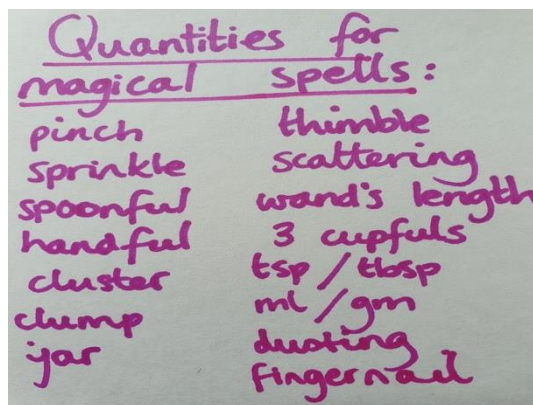 Quantities for
magical spells:
pinch
sprinkle
spoonful
handful
cluster
clump
jar
thimble
scattering
wand's length
3 cupfuls
tsp / tbsp
ml / gm
dusting
fingernail